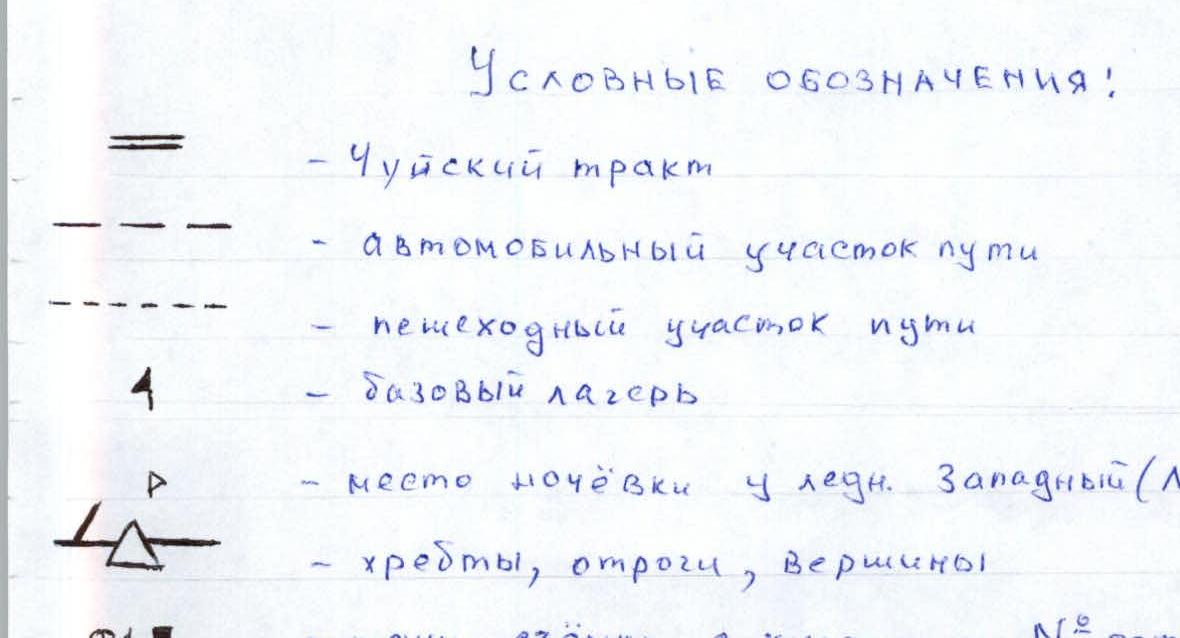 Условные обозначения!
- Чуйский тракт
- автомобильный участок пути
- пешеходный участок пути
- базовый лагерь
- место ночёвки у ледн. Западный (
- хребты, отроги, вершины
№